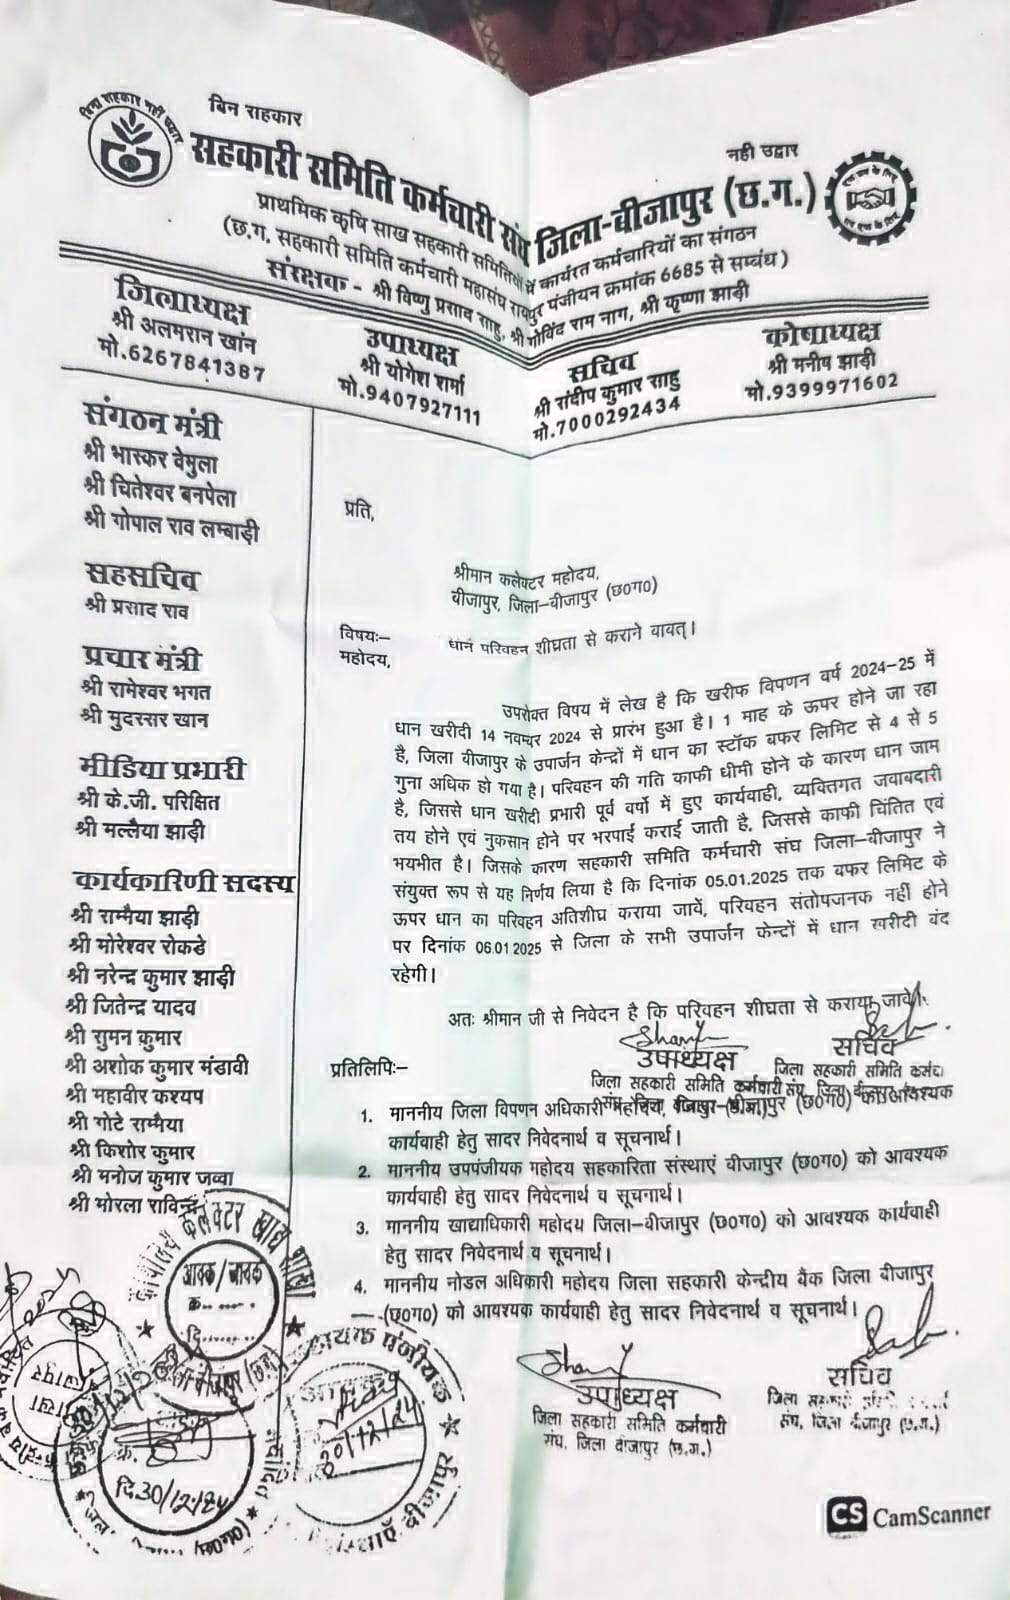 बिना सहकार नहीं उद्धार
बिन सहकार
नही उद्वार
सहकारी समिति कर्मचारी संघ जिला-बीजापुर (छ.ग.)
प्राथमिक कृषि साख सहकारी समितियों में कार्यरत कर्मचारियों का संगठन
(छ.ग. सहकारी समिति कर्मचारी महासंघ रायपुर पंजीयन क्रमांक 6685 से सम्बंध)
संरक्षक - श्री विष्णु प्रसाद साहु, श्री गोविंद राम नाग, श्री कृष्णा झाड़ी
जिलाध्यक्ष
श्री अलमरान खांन
मो.6267841387
उपाध्यक्ष
श्री योगेश शर्मा
मो.9407927111
सचिव
श्री संदीप कुमार साहु
मो.7000292434
कोषाध्यक्ष
श्री मनीष झाड़ी
मो.9399971602
संगठन मंत्री
श्री भास्कर वेमुला
श्री चितेश्वर बनपेला
श्री गोपाल राव लम्बाड़ी
सहसचिव
श्री प्रसाद राव
प्रचार मंत्री
श्री रामेश्वर भगत
श्री मुदस्सर खान
मीडिया प्रभारी
श्री के.जी. परिक्षित
श्री मल्लैया झाड़ी
कार्यकारिणी सदस्य
श्री राम्मैया झाड़ी
श्री मोरेश्वर रोकडे
श्री नरेन्द्र कुमार झाड़ी
श्री जितेन्द्र यादव
श्री सुमन कुमार
श्री अशोक कुमार मंडावी
श्री महावीर कश्यप
श्री गोटे राम्मैया
श्री किशोर कुमार
श्री मनोज कुमार जव्वा
श्री मोरला राविन्द्र
प्रति,
श्रीमान कलेक्टर महोदय,
बीजापुर, जिला-बीजापुर (छ0ग0)
विषयः- धान परिवहन शीघ्रता से कराने वावत्।
महोदय,
उपरोक्त विषय में लेख है कि खरीफ विपणन वर्ष 2024-25 में
धान खरीदी 14 नवम्बर 2024 से प्रारंभ हुआ है। 1 माह के ऊपर होने जा रहा
है, जिला बीजापुर के उपार्जन केन्द्रों में धान का स्टॉक बफर लिमिट से 4 से 5
गुना अधिक हो गया है। परिवहन की गति काफी धीमी होने के कारण धान जाम
है, जिससे धान खरीदी प्रभारी पूर्व वर्षो में हुए कार्यवाही, व्यक्तिगत जवाबदारी
तय होने एवं नुकसान होने पर भरपाई कराई जाती है, जिससे काफी चिंतित एवं
भयभीत है। जिसके कारण सहकारी समिति कर्मचारी संघ जिला-बीजापुर ने
संयुक्त रूप से यह निर्णय लिया है कि दिनांक 05.01.2025 तक बफर लिमिट के
ऊपर धान का परिवहन अतिशीघ्र कराया जावें, परिवहन संतोपजनक नहीं होने
पर दिनांक 06.01.2025 से जिला के सभी उपार्जन केन्द्रों में धान खरीदी वंद
रहेगी।
अतः श्रीमान जी से निवेदन है कि परिवहन शीघता से कराया जावे।
उपाध्यक्ष
जिला सहकारी समिति कर्मचारी
संघ, जिला बीजापुर (छ.ग.)
सचिव
जिला सहकारी समिति कर्मचा
संघ, जिला बीजापुर
प्रतिलिपिः-
1. माननीय जिला विपणन अधिकारी महोदय, बीजापुर (छ0ग0) को आवश्यक
कार्यवाही हेतु सादर निवेदनार्थ व सूचनार्थ।
2. माननीय उपपंजीयक महोदय सहकारिता संस्थाएं बीजापुर (छ0ग0) को आवश्यक
कार्यवाही हेतु सादर निवेदनार्थ व सूचनार्थ।
3. माननीय खाद्याधिकारी महोदय जिला-बीजापुर (छ0ग0) को आवश्यक कार्यवाही
हेतु सादर निवेदनार्थ व सूचनार्थ।
4. माननीय नोडल अधिकारी महोदय जिला सहकारी केन्द्रीय बैंक जिला बीजापुर
(छ0ग0) को आवश्यक कार्यवाही हेतु सादर निवेदनार्थ व सूचनार्थ।
उपाध्यक्ष
जिला सहकारी समिति कर्मचारी
संघ, जिला बीजापुर (छ.ग.)
सचिव
जिला सहकारी
संघ, जिला बीजापुर (छ.ग.)
कार्यालय कलेक्टर खाद्य शाखा
आवक/जावक
क.......
दि........
बीजापुर (छ.ग.)
क्र.
दि.30/12/24
(छ0ग0)
पंजीयक
30/12/24
संस्थाएँ बीजापुर
CS CamScanner